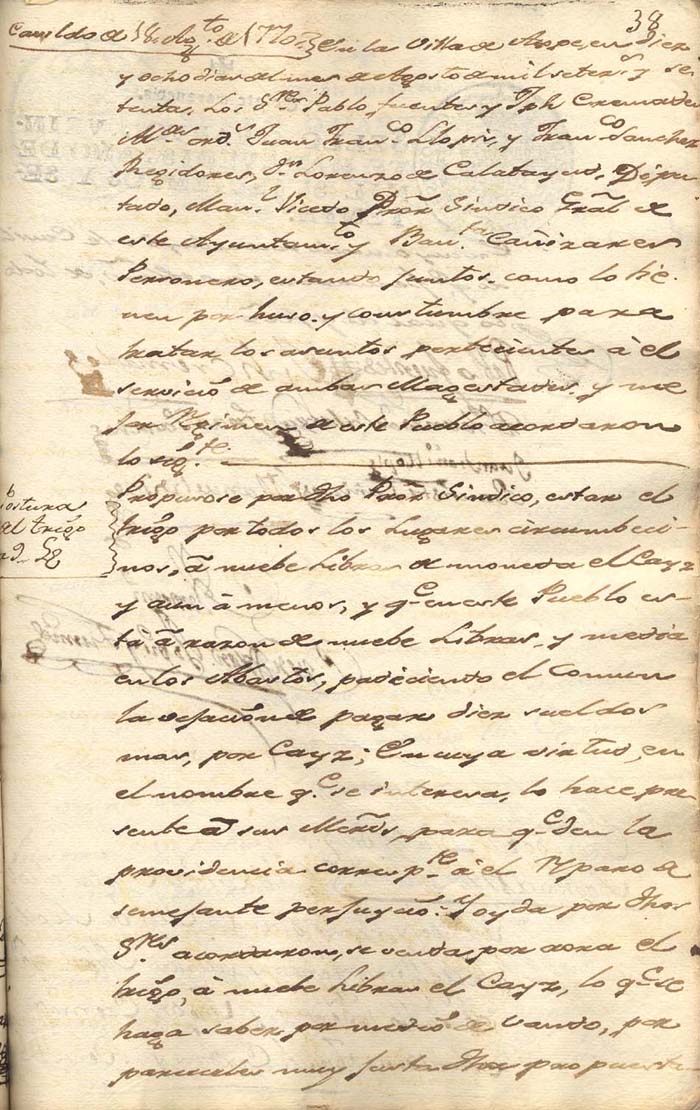 38
Cavildo de 18 Ag.to de 1770 En la Villa de Aspe, en diez
y ocho dias del mes de Agosto de mil seteci.s y se
tenta. Los S.res Pablo fuentes y Jph Cremades
Al.des ord.s Juan Fran.co Llopis, y Fran.co Sanchez
Regidores, D.n Lorenzo de Calatayud, Dipu
tado, Man.l Vicedo Pror Sindico Gral de
este Ayuntam.to y Bau.ta Cañizares
Personero, estando juntos, como lo tie
nen por huso, y constumbre para
tratar los asuntos pertecientes à el
servicio de ambas Magestades, y me
jor Regimen de este Pueblo acordaron
lo sig.te
Postura
del trigo
à 9 L.
Propusose por dho Pror Sindico, estar el
trigo por todos los Lugares circumbeci
nos, à nuebe Libras de moneda el Cayz
y aun à menos, y q.e en este Pueblo es
ta à razon de nuebe Libras, y media
en los Abastos, padeciendo el Comun
la vejacion de pagar diez sueldos
mas, por Cayz; En cuya virtud, en
el nombre q.e se interesa, lo hace pre
sente à sus Merds, para q.e den la
providencia corresp.te à el Reparo de
semejante perjuycio: Y oyda por dhos
S.res acordaron, se venda por aora el
trigo, à nuebe Libras el Cayz, lo q.e se
haga saber por medio de vando, por
parecerles muy justa dha propuesta